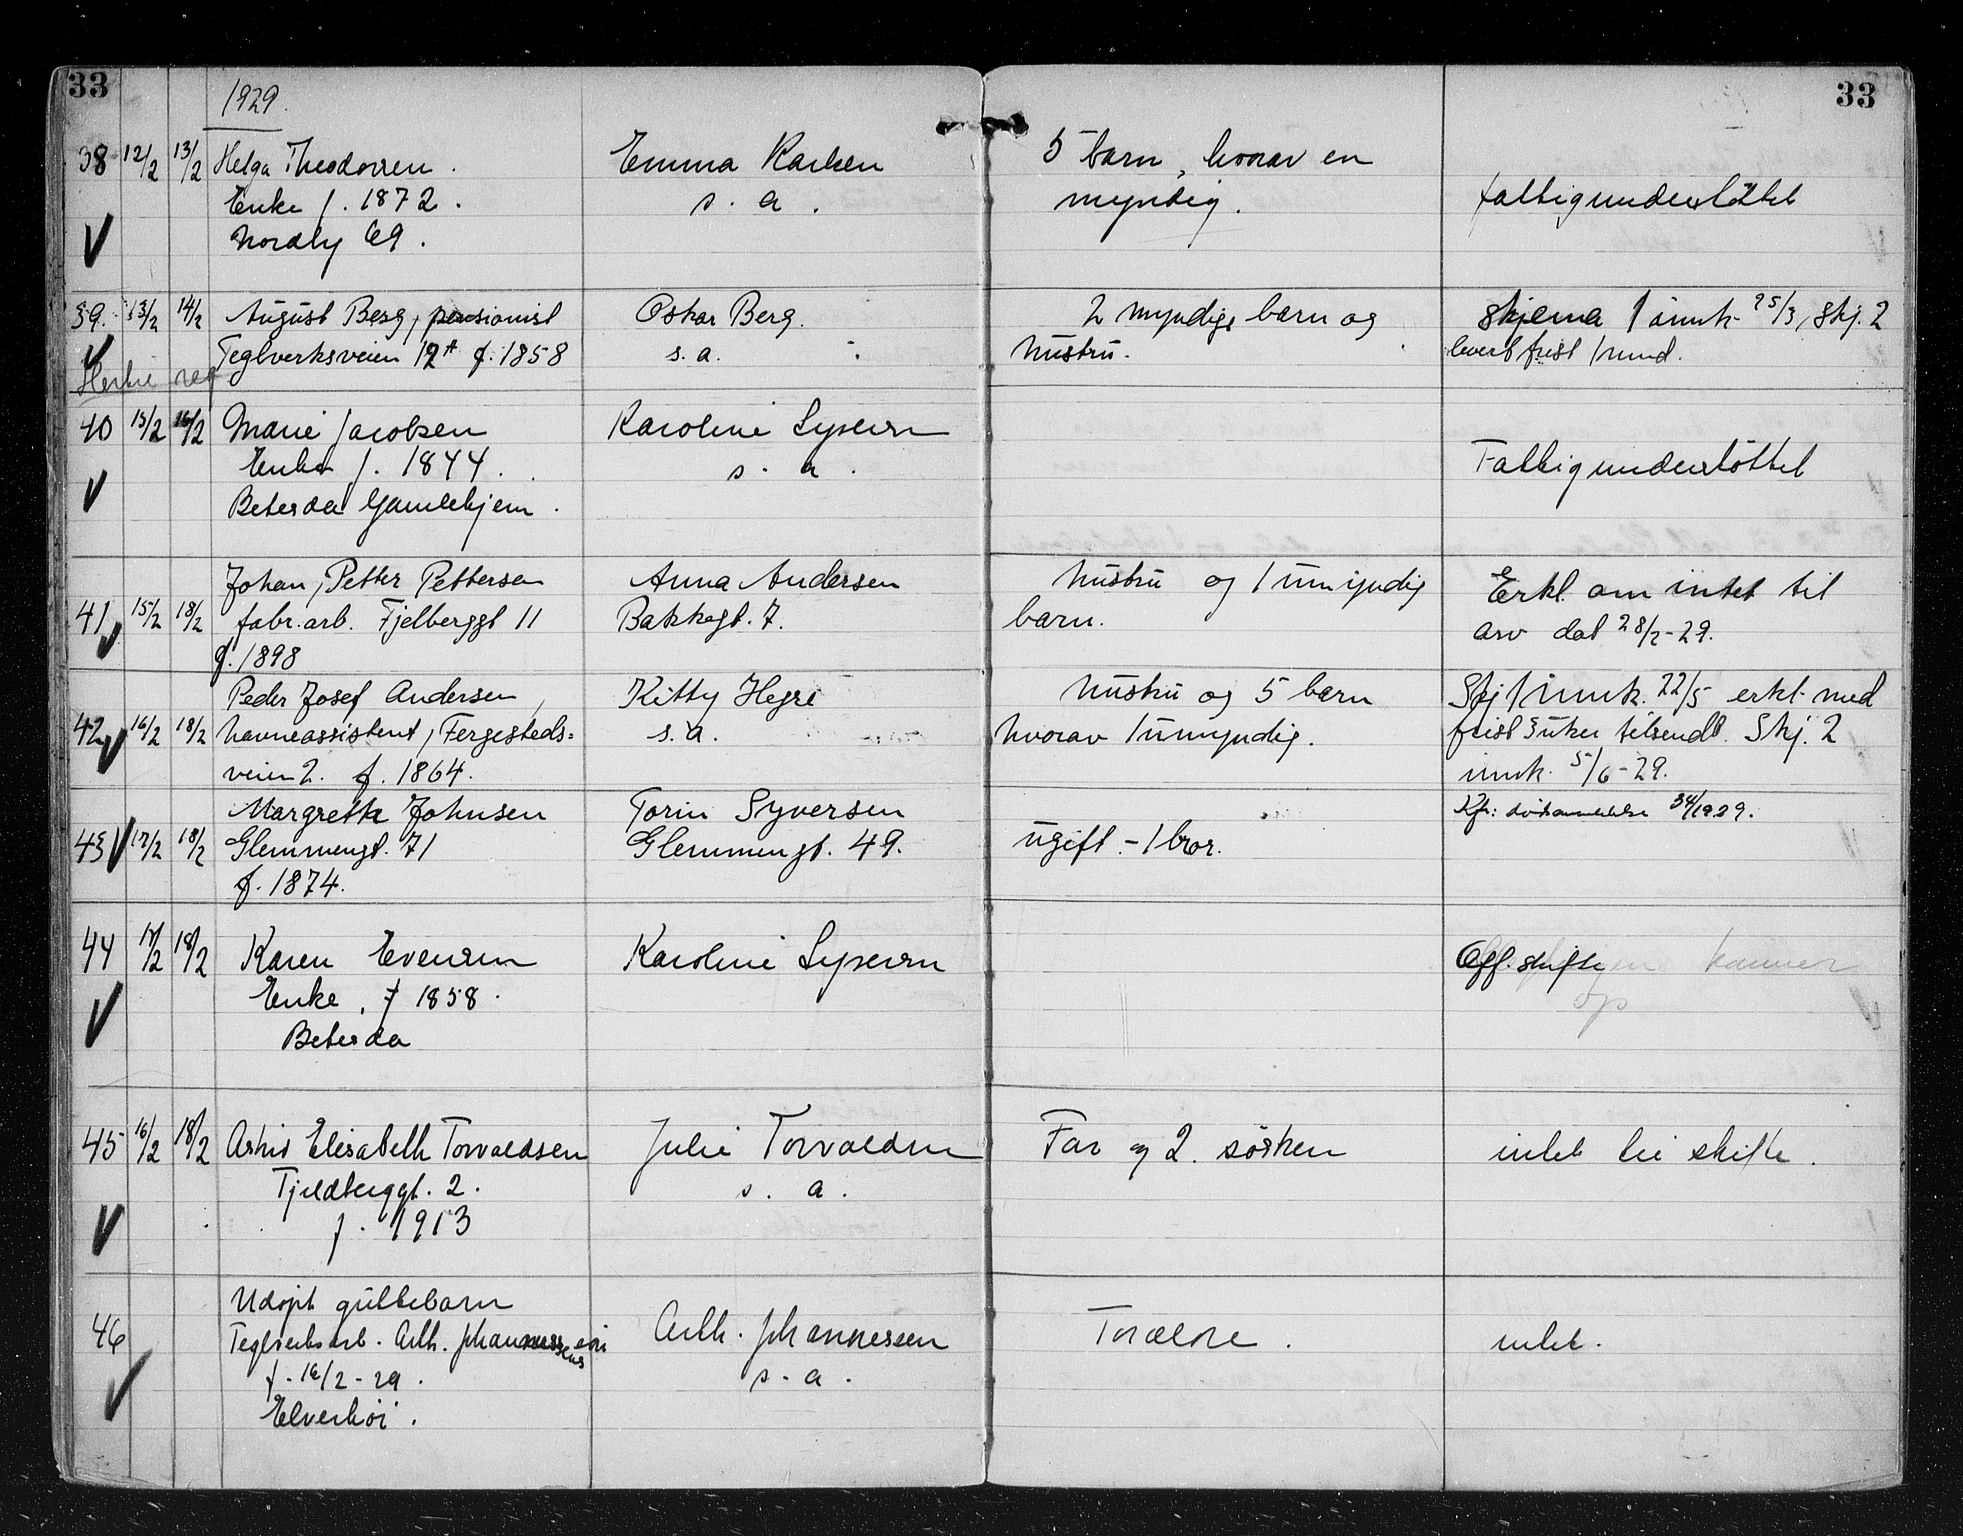 33
33
1929.
38 12/2 13/2 Helga Theodorsen. Emma Karlsen 5 barn, hvorav en
Enke f. 1872. s. a. myndig. fattigunderstöttet
Nordly 69.
39. 13/2 14/2 August Berg, pensionist Oskar Berg. 2 myndige barn og skjema 1 innk. 25/3, skj. 2
Teglverksveien 12A f. 1858 s.a. hustru. levert frist 1 mnd.
40 15/2 16/2 Marie Jacobsen Karoline Syversen
Enke f. 1844. s. a. Fattigunderstöttet
Betesda Gamlehjem.
Johan Petter Pettersen Anna Andersen hustru og 1 umyndig Erkl. om intet til
41 15/2 18/2 fabr.arb. Fjelberggt 11 Bakkegt. 7. barn. arv dat 28/2-29.
f. 1898
Peder Josef Andersen, Kitty Hegre hustru og 5 barn Skj 1 innk. 22/5 erkl. med
42 16/2 18/2 havneassistent, Fergesteds= s.a. hvorav 1 umyndig. frist 3 uker tilsendt. Skj. 2
veien 2. f. 1864. innk. 5/6-29.
Margrethe Johnsen Torin Syversen Kfr: dödsanmeldelse 34/1929.
43 17/2 18/2 Glemmengt. 71 Glemmengt. 49. ugift - 1 bror.
f. 1874.
44 17/2 18/2 Karen Evensen Karoline Syversen Off. skifte
Enke, f 1858.
Betesda
45 16/2 18/2 Astrid Elisabeth Torvaldsen Julie Torvaldsen Far og 2 sösken intet til skifte.
Fjeldberggt. 2. s. a.
f. 1913
Udöpt guttebarn
46 Teglverksarb. Arth. Johannessens Arth. Johannessen Forældre. intet.
f. 16/2-29. s. a.
Elverhöi.